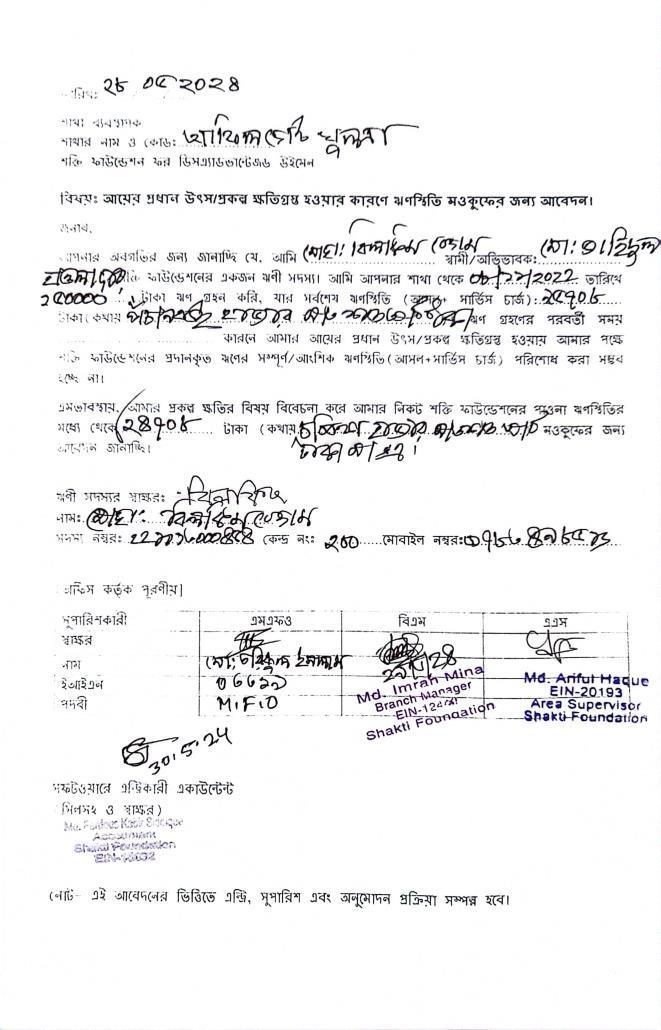 তারিখ: ২৮ ০৫ ২০২৪
শাখা ব্যবস্থাপক
শাখার নাম ও কোড:
শক্তি ফাউন্ডেশন ফর ডিসএ্যাডভান্টেজড উইমেন
বিষয়: আয়ের প্রধান উৎস/প্রকল্প ক্ষতিগ্রস্ত হওয়ার কারণে ঋণস্থিতি মওকুফের জন্য আবেদন।
জনাব,
আপনার অবগতির জন্য জানাচ্ছি যে, আমি মোছা: বিলকিস বেগম স্বামী/অভিভাবক: মো:
শক্তি ফাউন্ডেশনের একজন ঋণী সদস্য। আমি আপনার শাখা থেকে ০৮/১১/২০২২ তারিখে
টাকা ঋণ গ্রহন করি, যার সর্বশেষ ঋণস্থিতি (আসল+ সার্ভিস চার্জ):
টাকা (কথায় হাজার ঋণ গ্রহণের পরবর্তী সময়
কারনে আমার আয়ের প্রধান উৎস/প্রকল্প ক্ষতিগ্রস্ত হওয়ায় আমার পক্ষে
শক্তি ফাউন্ডেশনের প্রদানকৃত ঋণের সম্পূর্ণ/আংশিক ঋণস্থিতি (আসল+সার্ভিস চার্জ) পরিশোধ করা সম্ভব
হচ্ছে না।
এমতাবস্থায়, আমার প্রকল্প ক্ষতির বিষয় বিবেচনা করে আমার নিকট শক্তি ফাউন্ডেশনের পাওনা ঋণস্থিতির
মধ্যে থেকে ২৪৭০৮ টাকা (কথায় চব্বিশ হাজার সাতশত আট মওকুফের জন্য
আবেদন জানাচ্ছি। টাকা মাত্র।
ঋণী সদস্যর স্বাক্ষর: বিলকিস
নাম: মোছা: বিলকিস বেগম
সদস্য নম্বর: কেন্দ্র নং: মোবাইল নম্বর:
[অফিস কর্তৃক পূরণীয়]
সুপারিশকারী এমএফও বিএম এএস
স্বাক্ষর
নাম ইসলাম Md. Imran Mina Md. Ariful Haque
ইআইএন ০৬৬১১ Branch Manager EIN-20193
পদবী M.F.O Shakti Foundation Area Supervisor
Shakti Foundation
30.5.24
সফটওয়ারে এন্ট্রিকারী একাউন্টেন্ট
(সিলসহ ও স্বাক্ষর)
Accountant
Shakti Foundation
নোট- এই আবেদনের ভিত্তিতে এন্ট্রি, সুপারিশ এবং অনুমোদন প্রক্রিয়া সম্পন্ন হবে।